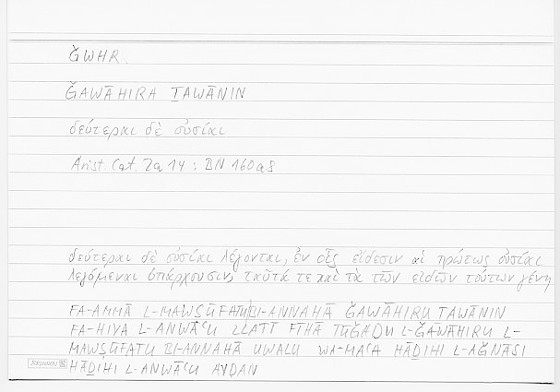 ǦWHR
ǦAWĀHIRA ṮAWĀNIN
δεύτεραι δὲ οὐσίαι
Arist. Cat. 2a14 : BN 160a8
δεύτεραι δὲ οὐσίαι λέγονται, ἐν οἷς εἴδεσιν αἱ πρώτως οὐσίαι
λεγόμεναι ὑπάρχουσιν, ταῦτά τε καὶ τὰ τῶν εἰδῶν τούτων γένη
FA-AMMĀ L-MAWṢŪFATU BI-ANNAHĀ ǦAWĀHIRU ṮAWĀNIN
FA-HIYA L-ANWĀʿU LLATĪ FĪHĀ TŪǦADU L-ǦAWĀHIRU L-
MAWṢŪFATU BI-ANNAHĀ UWALU WA-MAʿA HĀḎIHI L-AǦNĀSI
HĀḎIHI L-ANWĀʿU AYḌAN